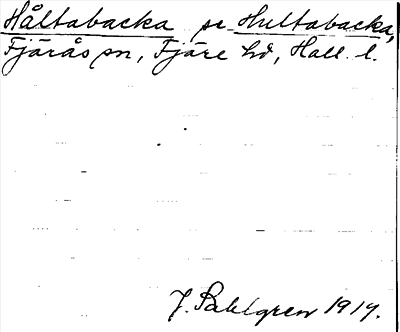 Håltabacka se Hultabacka,
Fjärås sn, Fjäre hd, Hall. l.
J. Sahlgren 1919.